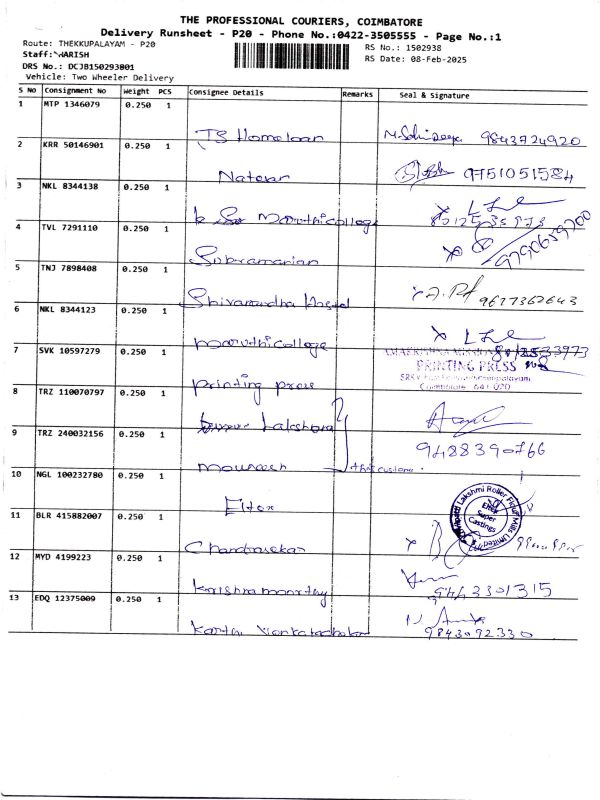 THE PROFESSIONAL COURIERS, COIMBATORE
Delivery Runsheet - P20 - Phone No.:0422-3505555 - Page No.:1
Route: THEKKUPALAYAM - P20
RS No.: 1502938
Staff: HARISH
RS Date: 08-Feb-2025
DRS No.: DCJB150293801
Vehicle: Two Wheeler Delivery
S No Consignment No Weight PCS Consignee Details Remarks Seal & Signature
1 MTP 1346079 0.250 1
TS Homeloan 9843724920
2 KRR 50146901 0.250 1
Natesan 9751051584
3 NKL 8344138 0.250 1
k Maruthi college
4 TVL 7291110 0.250 1
Subramanian 9790659700
5 TNJ 7898408 0.250 1
Shivanandha 9677362643
6 NKL 8344123 0.250 1
maruthi college
7 SVK 10597279 0.250 1
PRINTING PRESS
Coimbatore - 641 020
printing press
8 TRZ 110070797 0.250 1
Lakshana
9 TRZ 240032156 0.250 1
9488390766
10 NGL 100232780 0.250 1
Eltex
Lakshmi Roller Flour Mills Limited
Eltex Super Castings
11 BLR 415882007 0.250 1
Chandrasekar
12 MYD 4199223 0.250 1
Krishnamoorthy 9443301315
13 EDQ 12375009 0.250 1
Karthi Venkatachalam 9843092330